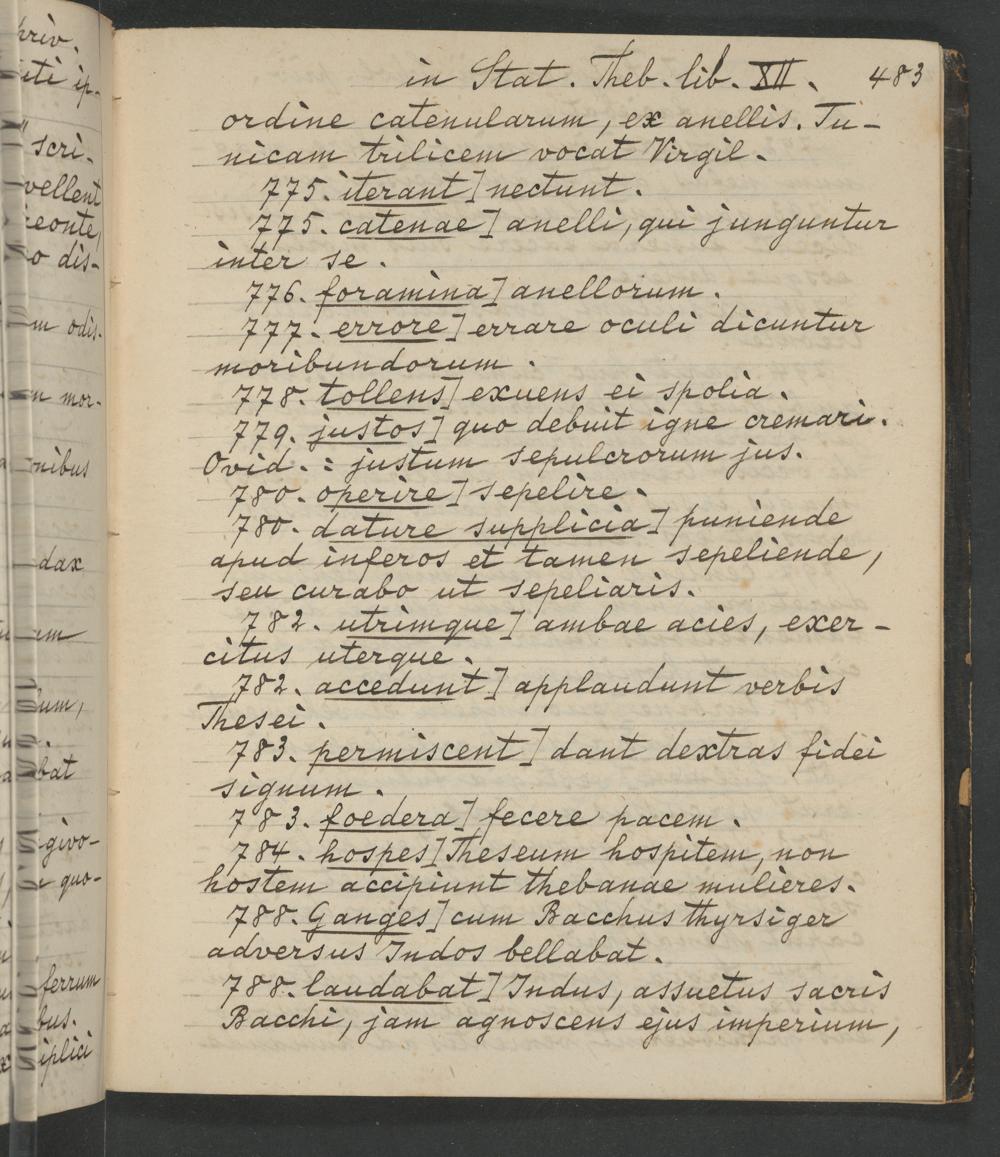 priv.
eti ip-
scri-
vellent
reonte,
o dis-
m odis-
n mor-
nibus
dax
um
bum,
bat
givo-
quo-
ferrum
bus.
iplici
in Stat. Theb. lib. XII. 483
ordine catenularum, ex anellis. Tu-
nicam trilicem vocat Virgil.
775. iterant] nectunt.
775. catenae] anelli, qui junguntur
inter se.
776. foramina] anellorum.
777. errore] errare oculi dicuntur
moribundorum.
778. tollens] exuens ei spolia.
779. justos] quo debuit igne cremari.
Ovid. : justum sepulcrorum jus.
780. operire] sepelire.
780. dature supplicia] puniende
apud inferos et tamen sepeliende,
seu curabo ut sepeliaris.
782. utrimque] ambae acies, exer-
citus uterque.
782. accedunt] applaudunt verbis
Thesei.
783. permiscent] dant dextras fidei
signum.
783. foedera] fecere pacem.
784. hospes] Theseum hospitem, non
hostem accipiunt thebanae mulieres.
788. Ganges] cum Bacchus thyrsiger
adversus Indos bellabat.
788. laudabat] Indus, assuetus sacris
Bacchi, jam agnoscens ejus imperium,